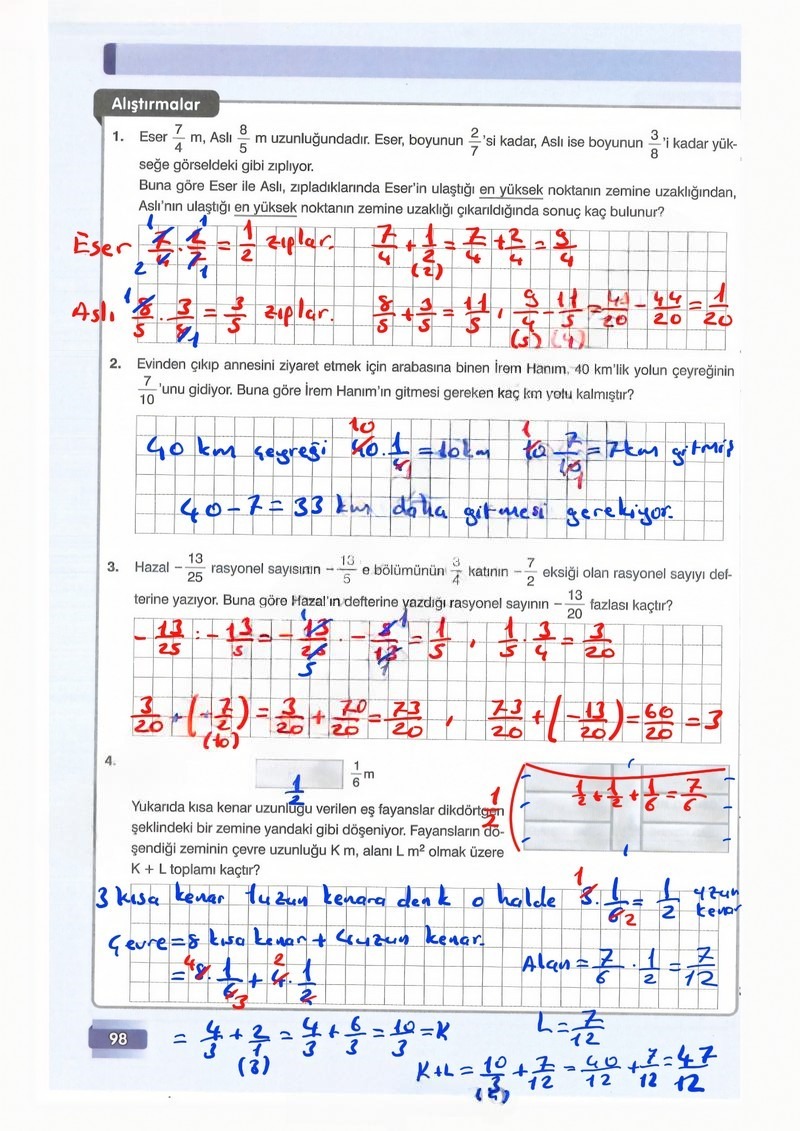 Alıştırmalar
1. Eser 7/4 m, Aslı 8/5 m uzunluğundadır. Eser, boyunun 2/7 'si kadar, Aslı ise boyunun 3/8 'i kadar yük-
seğe görseldeki gibi zıplıyor.
Buna göre Eser ile Aslı, zıpladıklarında Eser'in ulaştığı en yüksek noktanın zemine uzaklığından,
Aslı'nın ulaştığı en yüksek noktanın zemine uzaklığı çıkarıldığında sonuç kaç bulunur?
Eser 7/4 . 2/7 = 1/2 zıplar. 7/4 + 1/2 = 7/4 + 2/4 = 9/4
(2)
Aslı 8/5 . 3/8 = 3/5 zıplar. 8/5 + 3/5 = 11/5, 9/4 - 11/5 = 45/20 - 44/20 = 1/20
(5) (4)
2. Evinden çıkıp annesini ziyaret etmek için arabasına binen İrem Hanım, 40 km'lik yolun çeyreğinin
7/10 'unu gidiyor. Buna göre İrem Hanım'ın gitmesi gereken kaç km yolu kalmıştır?
40 km çeyreği 40 . 1/4 = 10 km 10 . 7/10 = 7 km gitmiş
40 - 7 = 33 km daha gitmesi gerekiyor.
3. Hazal - 13/25 rasyonel sayısının - 13/5 e bölümünün 3/4 katının - 7/2 eksiği olan rasyonel sayıyı def-
terine yazıyor. Buna göre Hazal'ın defterine yazdığı rasyonel sayının - 13/20 fazlası kaçtır?
- 13/25 : - 13/5 = - 13/25 . - 5/13 = 1/5, 1/5 . 3/4 = 3/20
3/20 - (- 7/2) = 3/20 + 70/20 = 73/20, 73/20 + (- 13/20) = 60/20 = 3
(10)
4.
1/2
1/6 m
1/2
1/2 + 1/2 + 1/6 = 7/6
Yukarıda kısa kenar uzunluğu verilen eş fayanslar dikdörtgen
şeklindeki bir zemine yandaki gibi döşeniyor. Fayansların dö-
şendiği zeminin çevre uzunluğu K m, alanı L m² olmak üzere
K + L toplamı kaçtır?
3 kısa kenar 1 uzun kenara denk o halde 3 . 1/6 = 1/2 uzun kenar
Çevre = 8 kısa kenar + 4 uzun kenar.
= 8 . 1/6 + 4 . 1/2
Alan = 7/6 . 1/2 = 7/12
= 4/3 + 2/1 = 4/3 + 6/3 = 10/3 = K
(3)
L = 7/12
K+L = 10/3 + 7/12 = 40/12 + 7/12 = 47/12
(4)
98